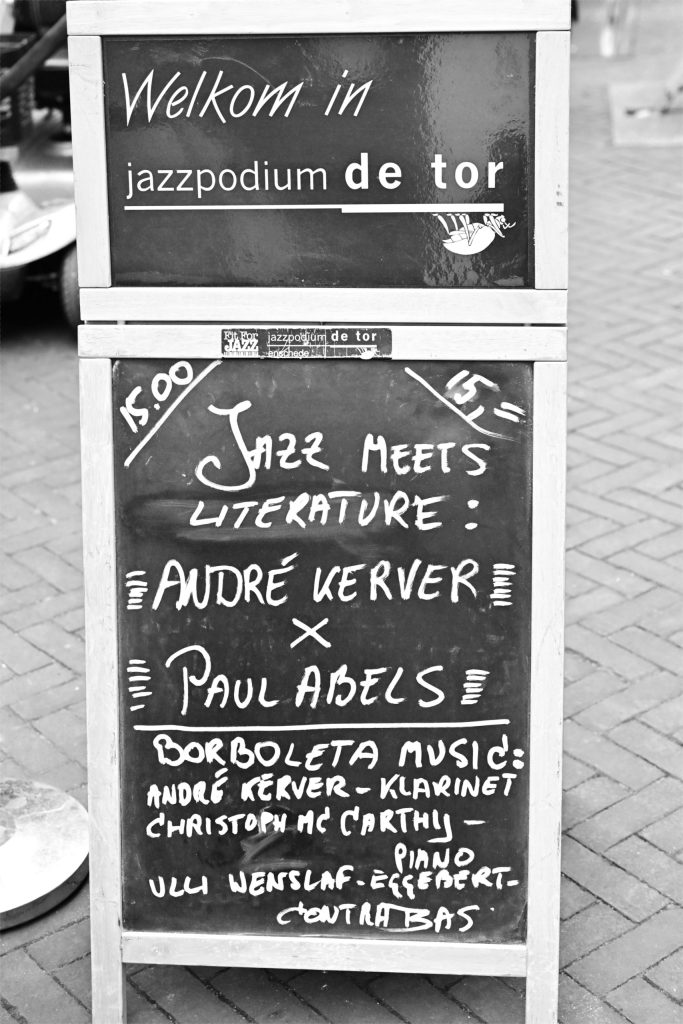 Welkom in
jazzpodium de tor
Fit For
JAZZ
jazzpodium de tor
enschede
15.00
15,"
JAZZ MEETS
LITERATURE:
ANDRÉ KERVER
X
PAUL ABELS
BORBOLETA MUSIC:
ANDRÉ KERVER - KLARINET
CHRISTOPH MC CARTHY -
PIANO
ULLI WENSLAF-EGGEBERT-
CONTRABAS